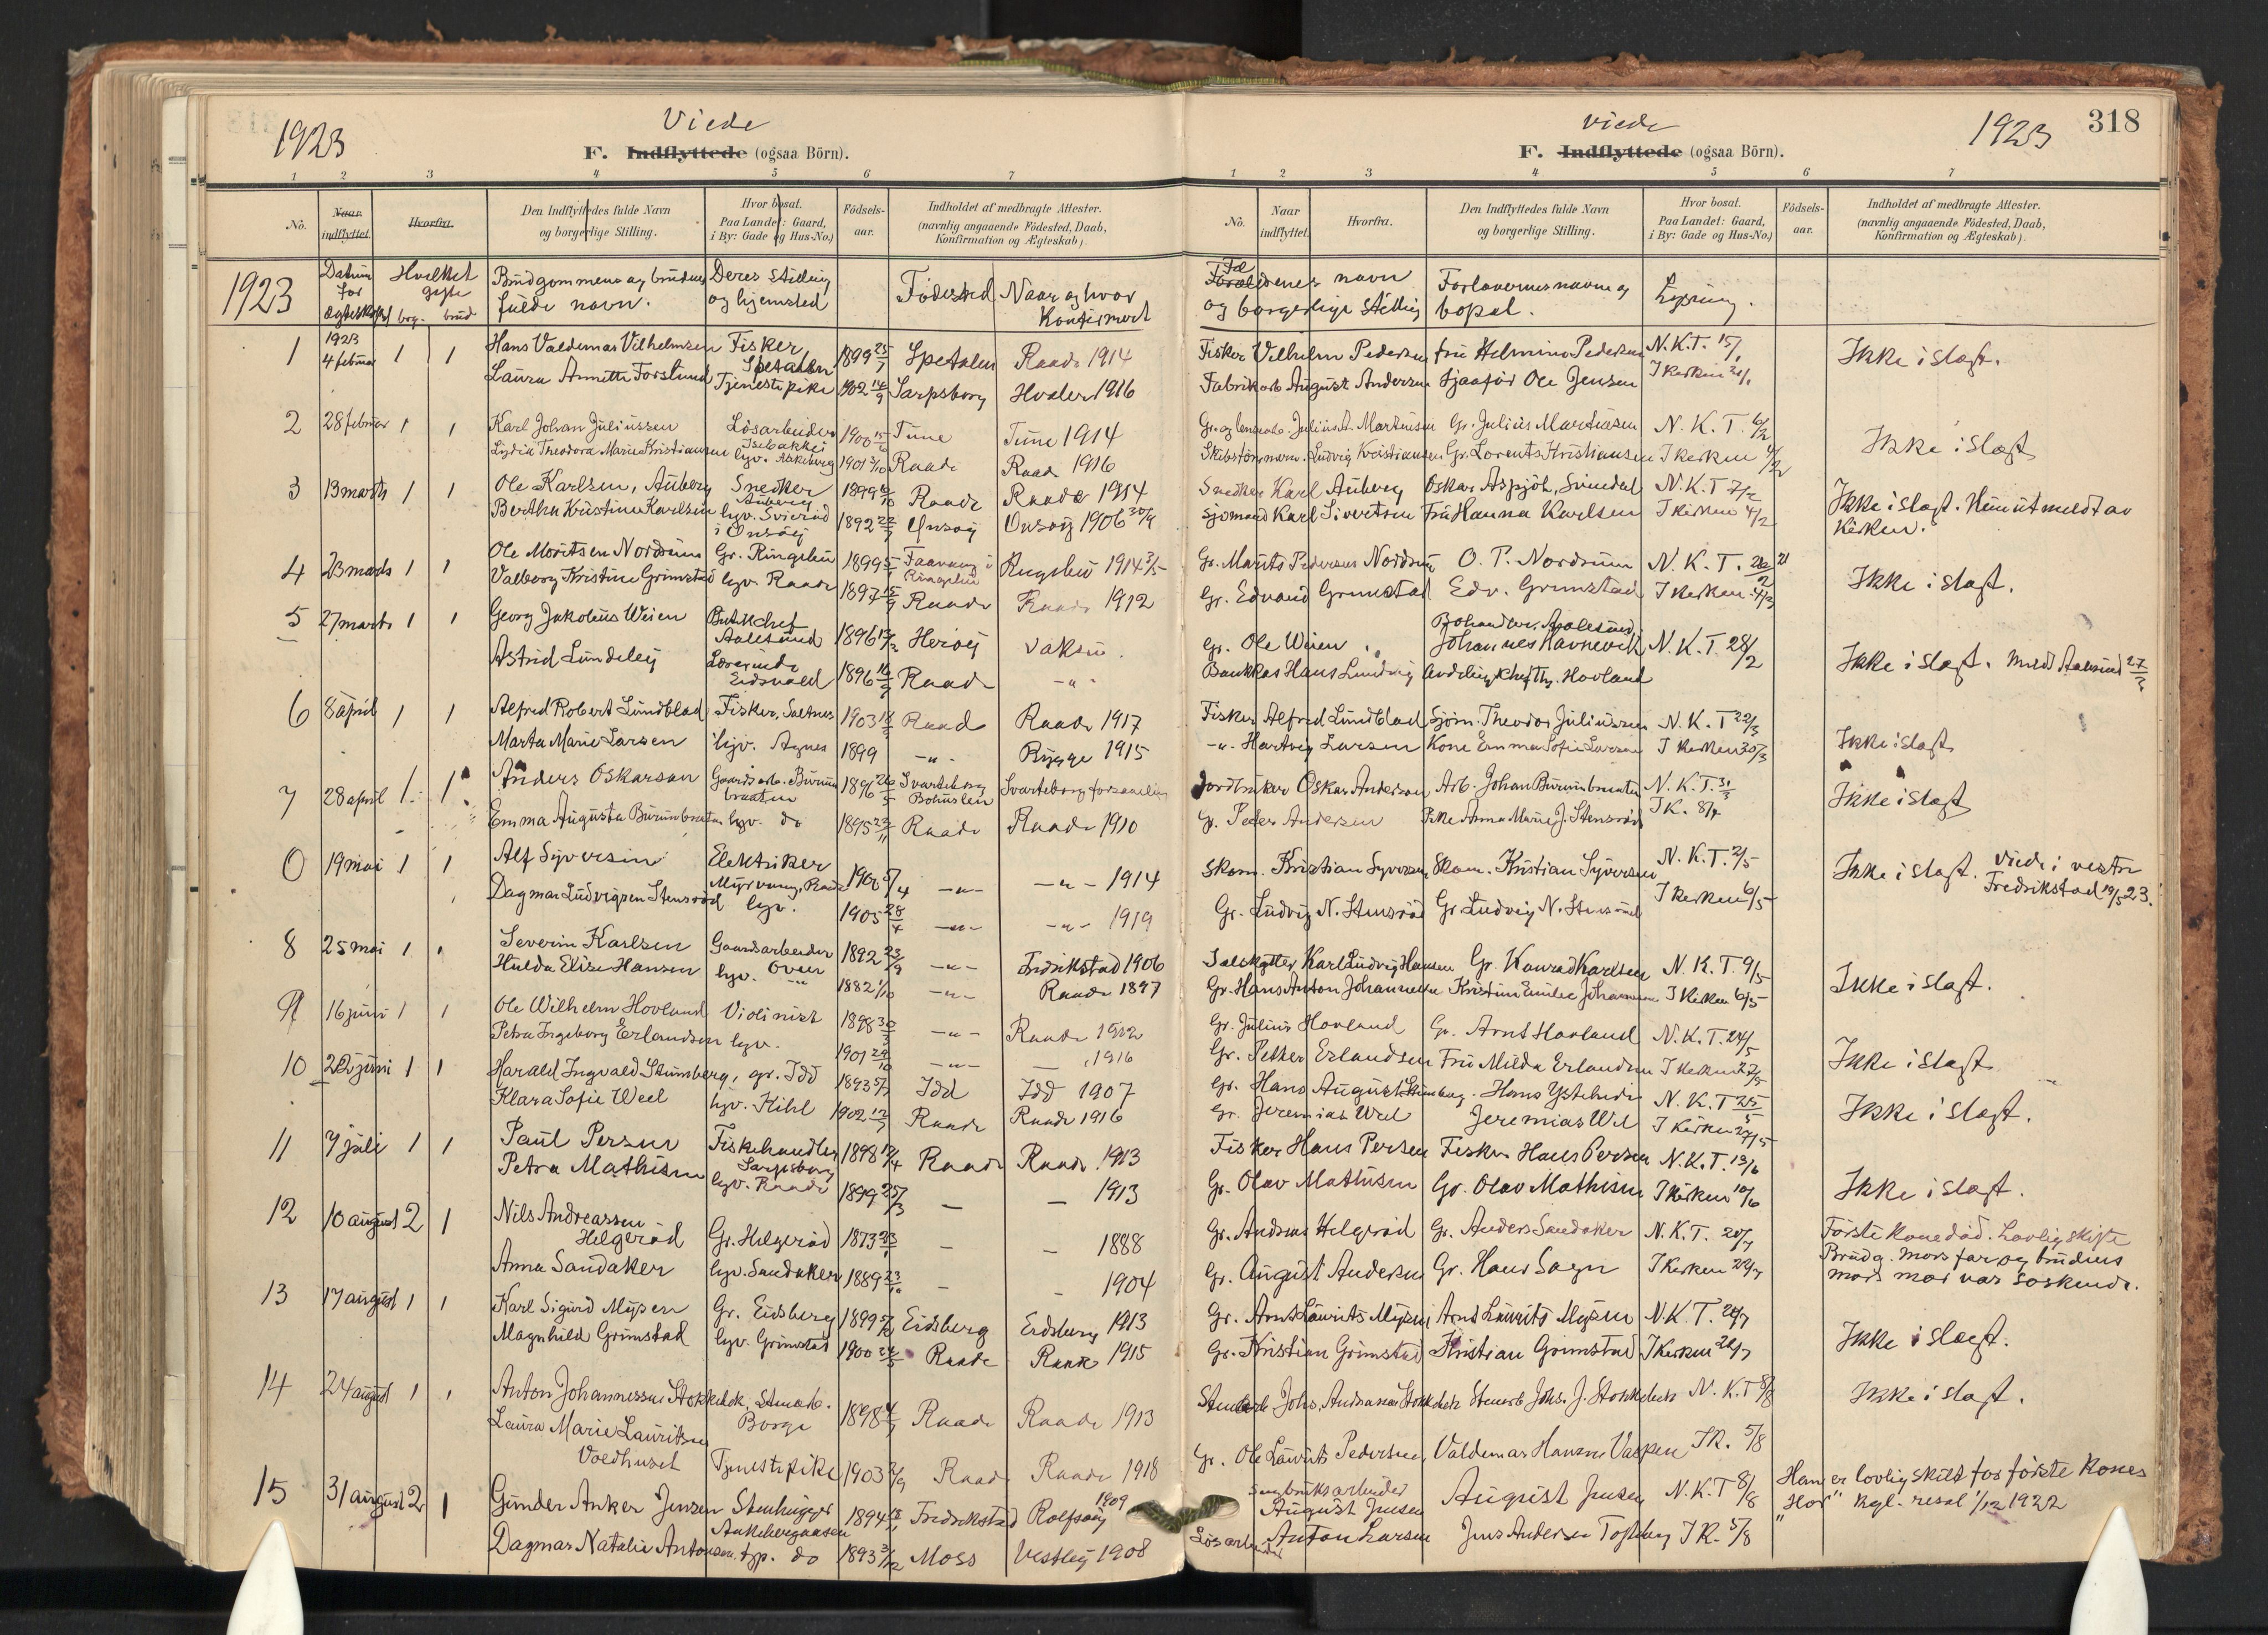 1923
Viede
F. Indflyttede (ogsaa Börn).
1 2 3 4 5 6 7
No. Naar indflyttet. Hvorfra. Den Indflyttedes fulde Navn og borgerlige Stilling. Hvor bosat. Paa Landet: Gaard, i By: Gade og Hus-No.) Födsels-aar. Indholdet af medbragte Attester. (navnlig angaaende Födested, Daab, Konfirmation og Ægteskab).
1923 Datum for Hvilket gifte brg. brud Brudgommens og brudens fulde navn. Deres stilling og hjemsted Födested Naar og hvor Konfirmert
1 1923 4 februar 1 1 Hans Valdemar Vilhelmsen Fisker Spetalen 1899 25/7 Spetalen Raade 1914
Laura Annette Forslund Tjenestepike 1902 14/9 Sarpsborg Hvaler 1916
2 28 februar 1 1 Karl Johan Juliussen Lösarbeider 1900 Tune Tune 1914
Lydia Theodora Marie Kristiansen hjv. 1901 3/10 Raade Raade 1916
3 13 marts 1 1 Ole Karlsen, Auberg Snedker Auberg 1899 Raade Raade 1914
Bertha Kristine Karlsen hjv. i Onsöy 1892 Onsöy Onsöy 1906 30/9
4 23 marts 1 1 Ole Moritsen Nordrum Gr. Ringebu 1899 Faavang i Ringebu Ringebu 1914 3/5
Valborg Kristine Grimstad hjv. Raade 1897 Raade Raade 1912
5 27 marts 1 1 Georg Jakobeus Weien Butikchef Aalesund 1896 Heröy
Astrid Lundeby Lærerinde Eidsvold 1896 Raade -"-
6 8 april 1 1 Alfred Robert Lundblad Fisker, Saltnes 1903 Raade Raade 1917
Marta Marie Larsen hjv. Agnes 1899 -"- Rygge 1915
7 28 april 1 1 Anders Oskarson Gaardsarb. Burumbraaten 1896 Svarteborg Bohuslen Svarteborg forsamling
Emma Augusta Burumbraaten hjv. do 1895 23/11 Raade Raade 1910
0 19 mai 1 1 Alf Syversen Elektriker Myrvang, Raade 1900 -"- -"- 1914
Dagmar Ludvigsen Stensröd hjv. 1905 28/4 -"- -"- 1919
8 25 mai 1 1 Severin Karlsen Gaardsarbeider 1892 23/9 -"- Fredrikstad 1906
Hulda Elise Hansen hjv. -"- 1882 1/10 -"- Raade 1897
9 16 juni 1 1 Ole Wilhelm Hovland Violinist 1898 -"- Raade 1912
Petra Ingeborg Erlandsen hjv. 1901 29/10 -"- 1916
10 22 juni 1 1 Harald Ingvald Stumberg, gr. Idd 1893 Idd Idd 1907
Klara Sofie Weel hjv. Kihl 1902 Raade Raade 1916
11 7 juli 1 1 Paul Persen Fiskehandler Sarpsborg 1898 Raade Raade 1913
Petra Mathisen hjv. Raade 1899 25/3 - - 1913
12 10 august 2 1 Nils Andreassen Helgeröd Gr. Helgeröd 1873 - - 1888
Anna Sandaker hjv. Sandaker 1889 23/10 - - 1904
13 17 august 1 1 Karl Sigurd Mysen Gr. Eidsberg 1899 Eidsberg Eidsberg 1913
Magnhild Grimstad hjv. Grimstad 1900 Raade Raade 1915
14 24 august 1 1 Anton Johannessen Stokkebek, Stenarb. Borge 1898 4/7 Raade Raade 1913
Laura Marie Lauritsen Voldhuset Tjenestepike 1903 Raade Raade 1918
15 31 august 2 1 Gunder Anker Jensen Stenhugger 1894 Fredrikstad Rolfsöy 1909
Dagmar Natalie Antonsen do 1893 3/12 Moss Vestby 1908
viede
1923
318
F. Indflyttede (ogsaa Börn).
1 2 3 4 5 6 7
No. Naar indflyttet. Hvorfra. Den Indflyttedes fulde Navn og borgerlige Stilling. Hvor bosat. Paa Landet: Gaard, i By: Gade og Hus-No.) Födsels-aar. Indholdet af medbragte Attester. (navnlig angaaende Födested, Daab, Konfirmation og Ægteskab).
Forældrenes navn og borgerlige stilling Forlovernes navne og bopæl. Lysning.
Fisker Vilhelm Pedersen fru Helmine Pedersen N.K.T. 15/1 Ikke i slegt.
Fabrikarb August Andersen Sjaafør Ole Jensen I kirken 21/1
Julius A. Martinsen Gr. Julius Martinsen N.K.T. 6/2 Ikke i Slegt
Ludvig Kristiansen Gr. Lorents Kristiansen I kirken 4/2
Snedker Karl Auberg Oskar Aspjöl, Svinndal N.K.T 7/2 Ikke i slegt. Hun utmeldt av kirken.
Sjömand Karl Sivertsen Fru Hanna Karlsen I kirken 4/2
Gr. Marits Pedersen Nordrum O. P. Nordrum N.K.T. Ikke i slegt.
Gr. Edvard Grimstad Edv. Grimstad I kirken 4/3
Gr. Ole Weien Johannes Havnevik N.K.T. 28/2 Ikke i slegt. Aalesund 27/3
Bankkas Hans Lundeby Hovland
Fisker Alfred Lundblad Sjöm. Theodor Juliussen N.K.T 22/3 Ikke i slegt
-"- Hartvig Larsen Kone Emma Sofie Larsen I kirken 30/3
Jordbruker Oskar Anderson Arb. Johan Burumbraaten N.K.T. 31/3 Ikke i slegt
G. Peder Andersen Pike Anna Marie J. Stensröd I K. 8/4
Skom. Kristian Syversen Skom. Kristian Syversen N.K.T. 2/5 Ikke i slegt. Viede i vestre Fredrikstad 19/5 23.
Gr. Ludvig N. Stensröd Gr Ludvig N. Stensröd I kirken 6/5
Karl Ludvig Hansen Gr. Konrad Karlsen N.K.T. 9/5 Ikke i slegt.
Gr. Hans Anton Johannesen Kristine Emilie Johannesen I kirken 6/5
Gr. Julius Hovland Gr. Arnt Hovland N.K.T. 24/5 Ikke i slegt
Gr. Petter Erlandsen Fru Milda Erlandsen I kirken 27/5
Gr. Hans August Stumberg. Hans Ystehede N.K.T 25/5 Ikke i slegt.
Gr. Jeremias Weel Jeremias Wel I kirken 27/5
Fisker Hans Persen Fisker Hans Persen N.K.T. 13/6 Ikke i slegt.
Gr. Olav Mathisen Gr. Olav Mathisen I kirken 10/6
Gr. Andreas Helgeröd Gr. Anders Sandaker N.K.T. 20/7 Förste kone död. Lovlig skifte
Brudg. mors far og brudens mors mor var söskende.
Gr. August Andersen Gr. Hans Sogn I kirken 22/7
Gr. Arnt Laurits Mysen Arnt Laurits Mysen N.K.T. 24/7 Ikke i slegt.
Gr. Kristian Grimstad Kristian Grimstad I kirken 22/7
Stenarb Johs. Andreasen Stokkebek Stenarb Johs. J. Stokkebek N.K.T 8/8 Ikke i slegt.
Gr. Ole Laurits Pedersen, Valdemar Hansen I K. 5/8
August Jensen August Jensen N.K.T 8/8 Han er lovlig skilt fra förste kones
kgl. resol 1/12 1922
Lösarbeider Anton Larsen Jens Andersen I K. 5/8